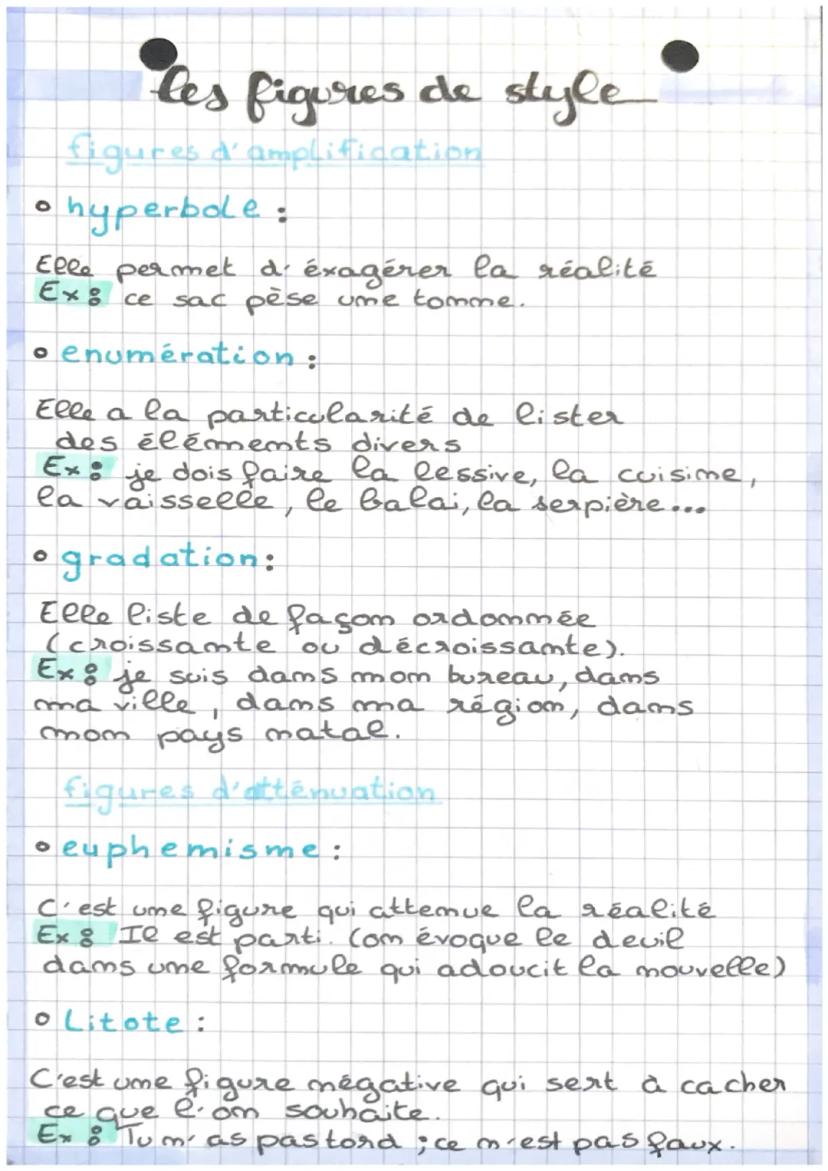 les figures de style
figures d'amplification
• hyperbole :
Elle permet d'éxagérer la réalité
Ex : ce sac pèse une tonne.
• enumération :
Elle a la particularité de lister
des éléments divers
Ex : je dois faire la lessive, la cuisine,
la vaisselle, le balai, la serpière...
• gradation :
Elle liste de façon ordonnée
(croissante ou décroissante).
Ex : je suis dans mon bureau, dans
ma ville, dans ma région, dans
mon pays natal.
figures d'atténuation
• euphemisme :
C'est une figure qui attenue la réalité
Ex : Il est parti. (on évoque le deuil
dans une formule qui adoucit la nouvelle)
• Litote :
C'est une figure négative qui sert à cacher
ce que l'on souhaite.
Ex : Tu n'as pas tord ; ce n'est pas faux.